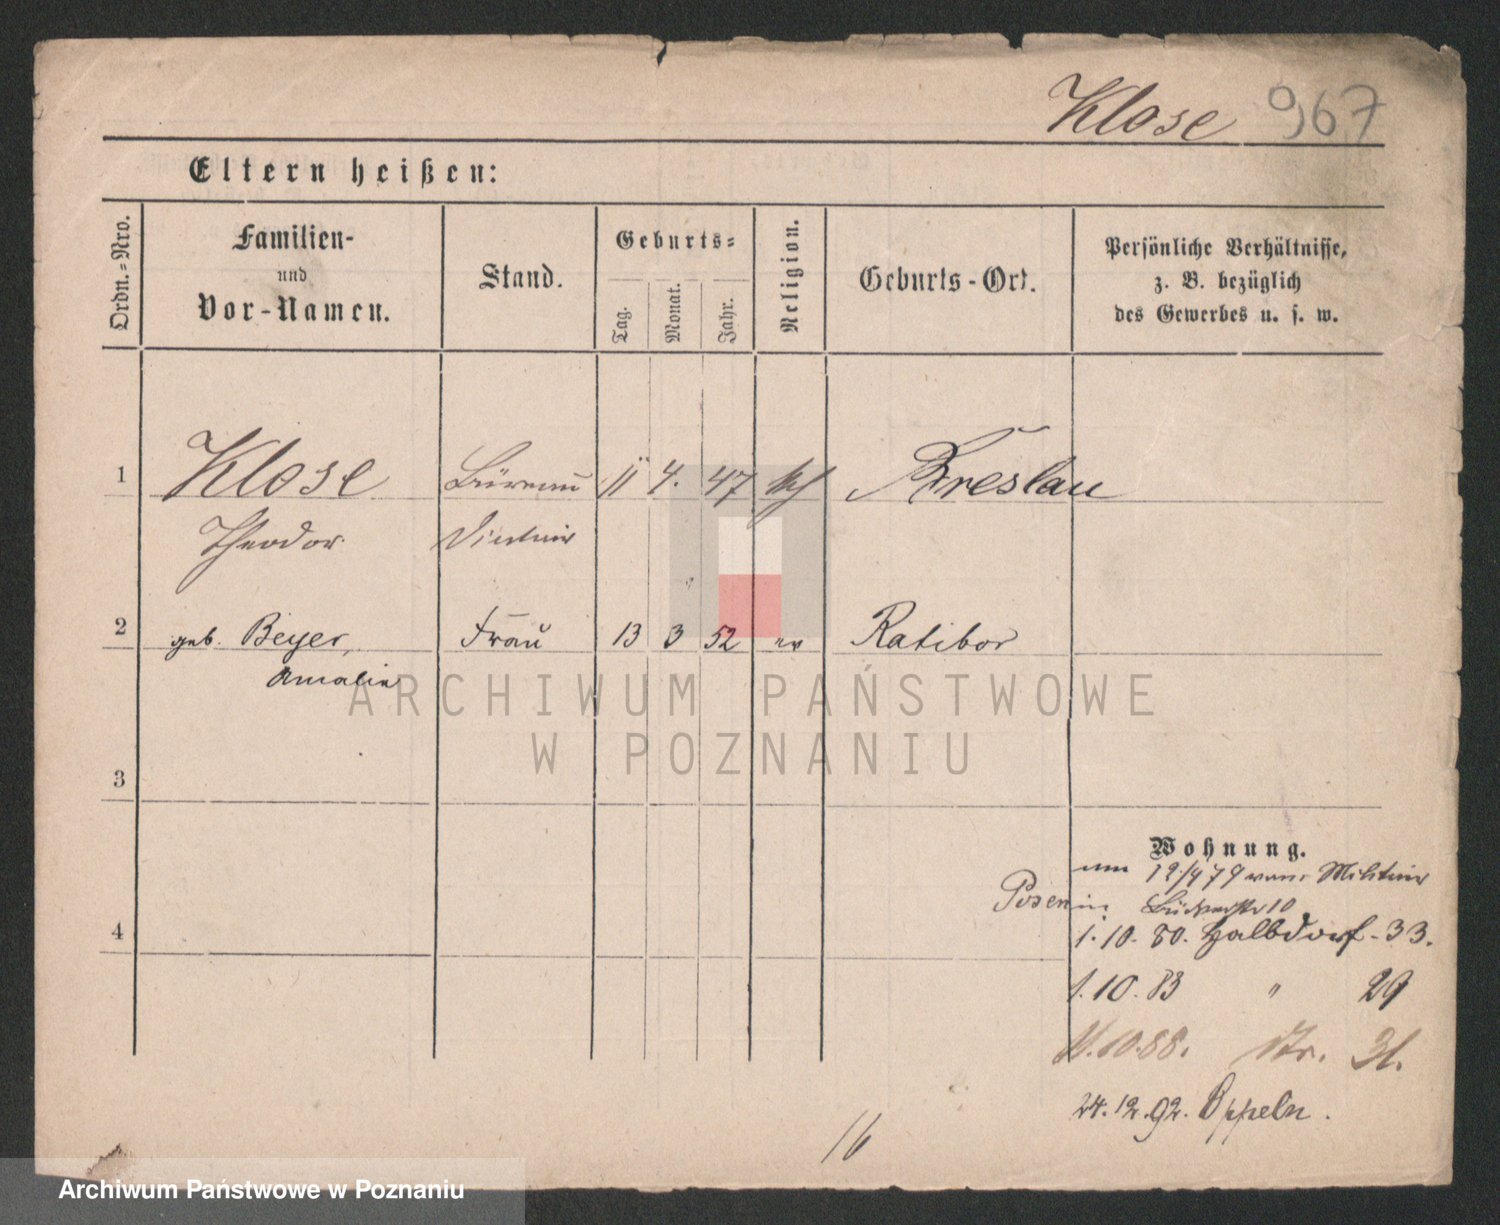 Klose 967
Eltern heißen:
Ordn.=Nro.
Familien-
und
Vor-Namen.
Stand.
Geburts=
Tag.
Monat.
Jahr.
Religion.
Geburts-Ort.
Persönliche Verhältnisse,
z. B. bezüglich
des Gewerbes u. s. w.
1 Klose Büreau 11 4. 47 kth Breslau
Theodor
2 geb. Beyer, Frau 13 3 52 ev Ratibor
Amalie
ARCHIWUM PAŃSTWOWE
W POZNANIU
3
Wohnung.
12/4 79 Militair
Posen in 10
4 1.10.80. Halbdorf-33.
1.10.83 " 29
11.10.88. Str. 31.
24.12.92. Oppeln.
16
Archiwum Państwowe w Poznaniu